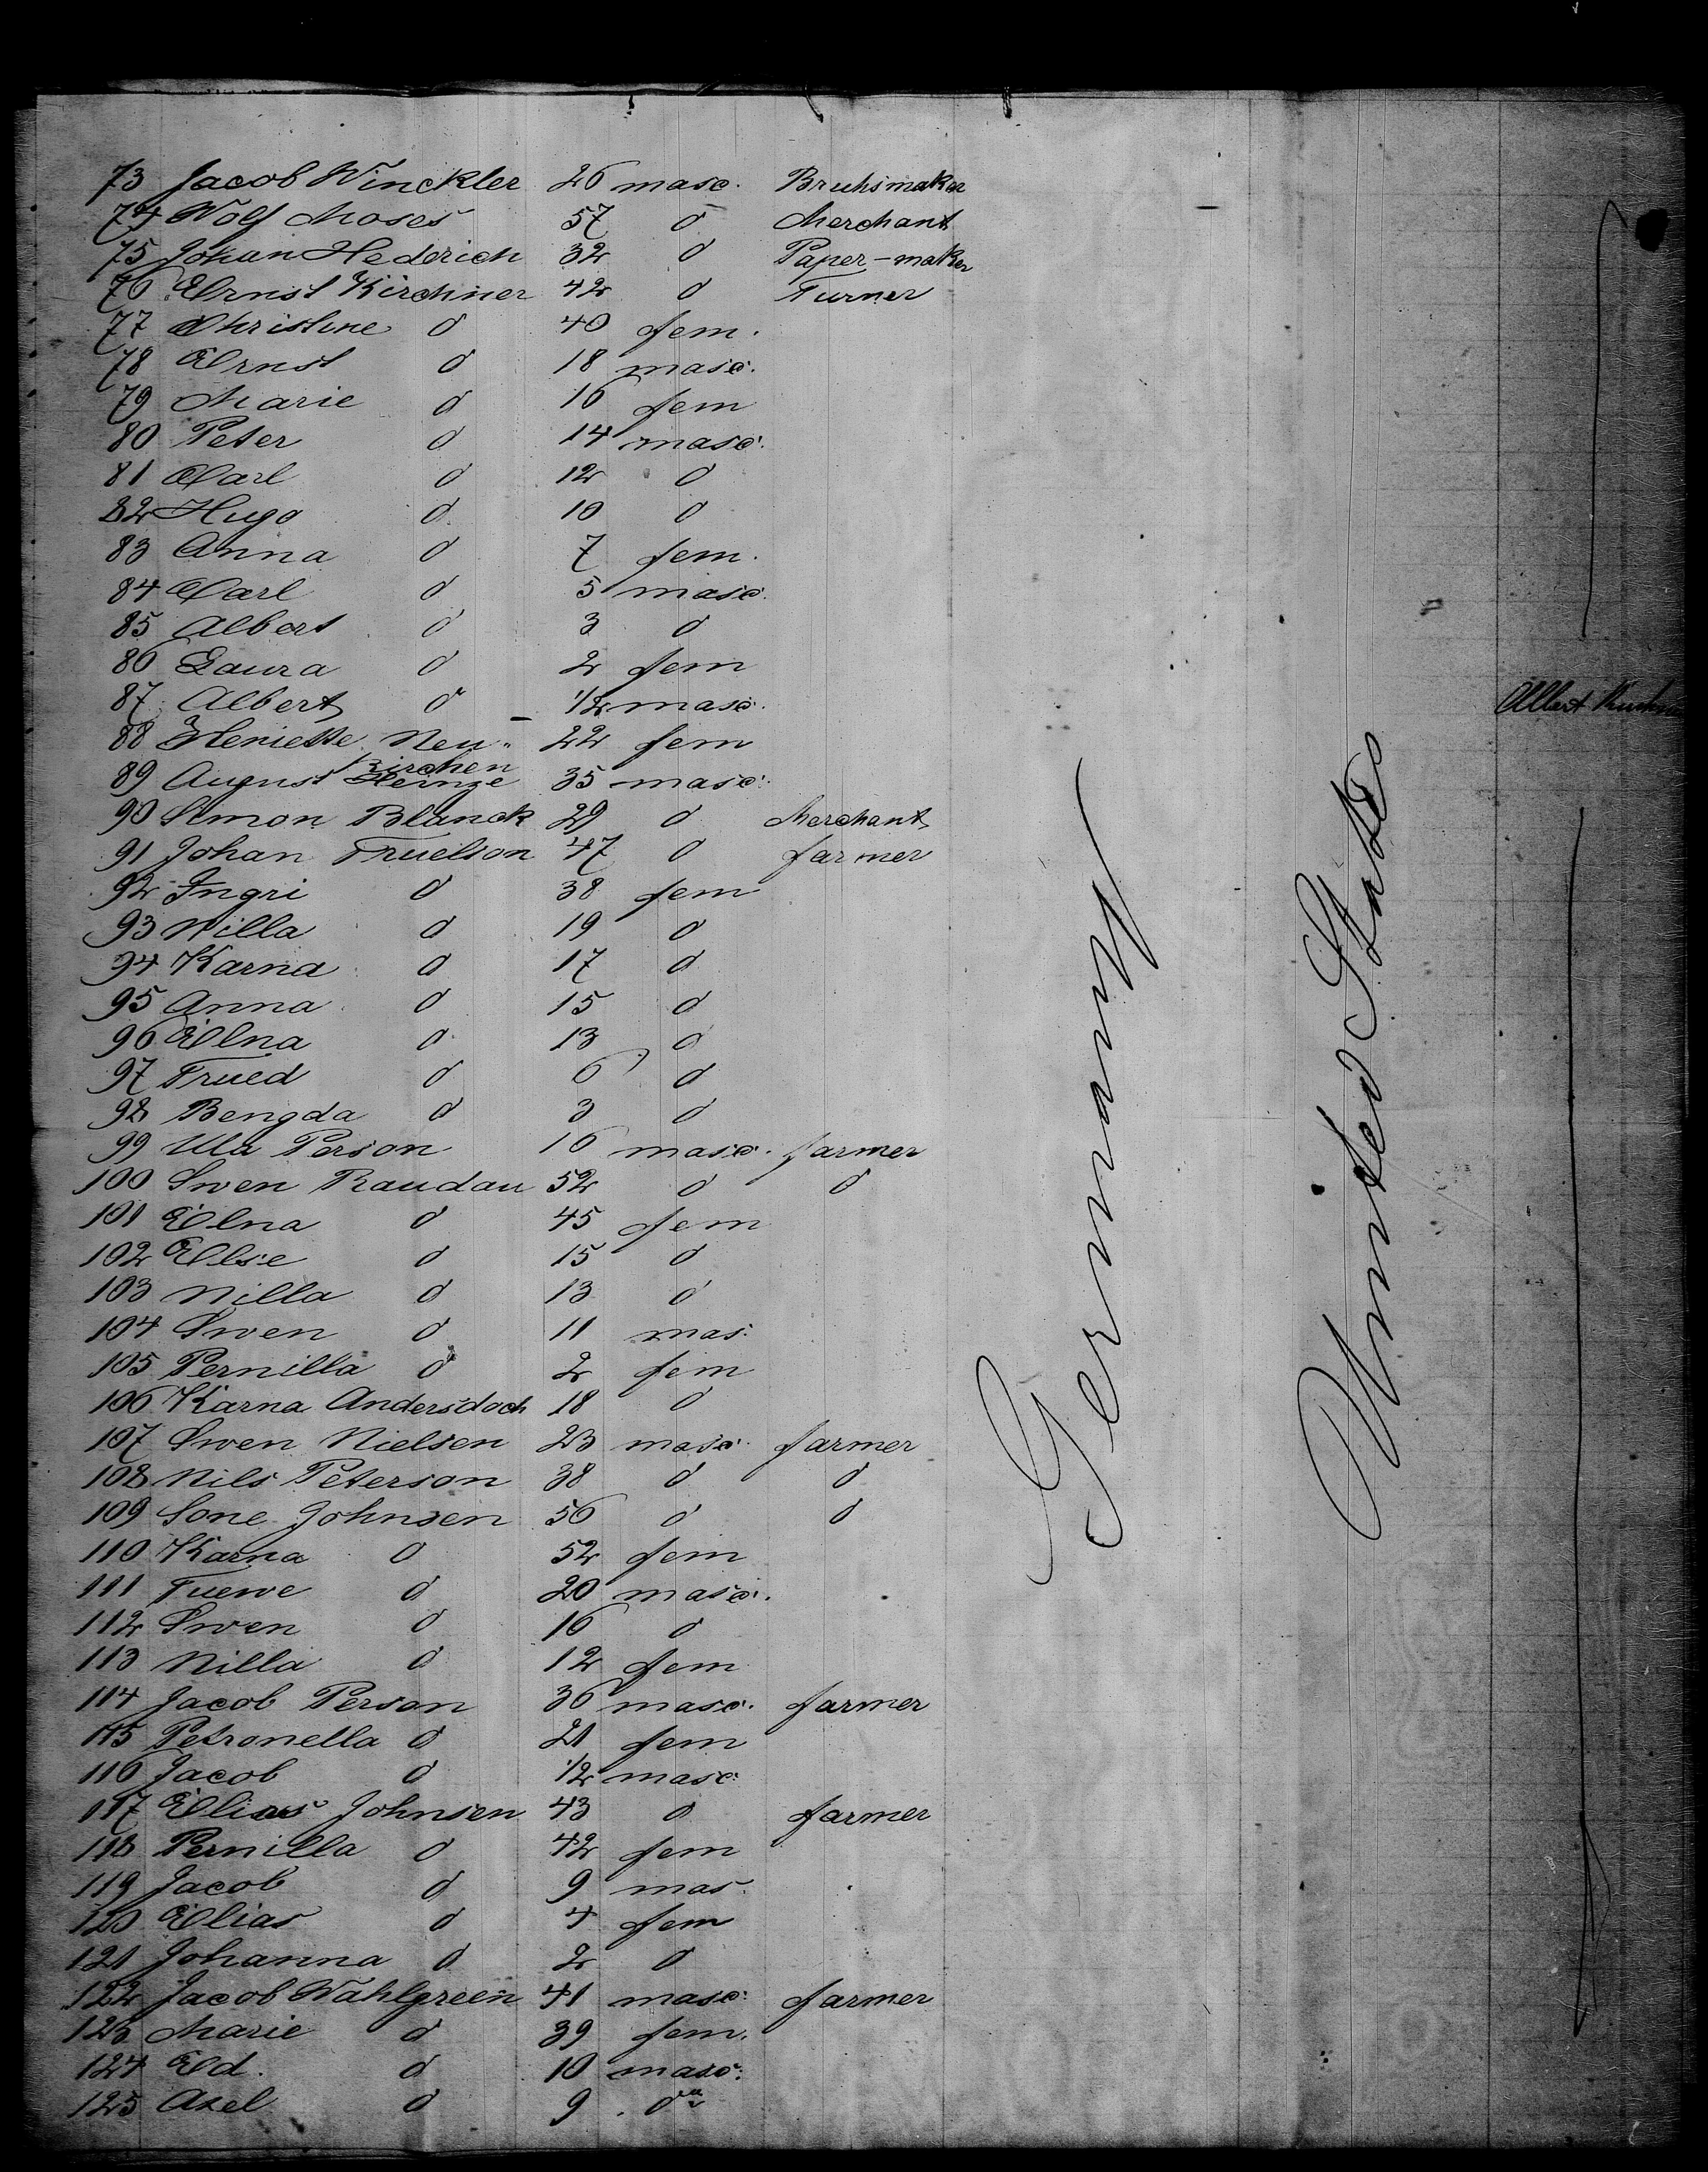 73 Jacob Winckler 26 masc. Bruhsmaker
74 Wolf Moses 57 d Merchant
75 Johan Hederich 32 d Paper-maker
76 Ernst Kirchner 42 d Turner
77 Christine d 40 fem.
78 Ernst d 18 masc.
79 Marie d 16 fem
80 Peter d 14 masc.
81 Carl d 12 d
82 Hugo d 10 d
83 Anna d 7 fem.
84 Carl d 5 masc.
85 Albert d 3 d
86 Laura d 2 fem
87 Albert d 1/2 masc.
88 Heniette Neu- 22 fem
kirchen
89 August Heinze 35 masc.
90 Simon Blanck 29 d Merchant
91 Johan Truelson 47 d farmer
92 Ingri d 38 fem
93 Nilla d 19 d
94 Karna d 17 d
95 Anna d 15 d
96 Elna d 13 d
97 Trued d 6 d
98 Bengda d 3 d
99 Ula Person 16 masc. farmer
100 Swen Raudau 52 d d
101 Elna d 45 fem
102 Else d 15 d
103 Nilla d 13 d
104 Swen d 11 mas.
105 Pernilla d 2 fem
106 Karna Andersdoch 18 d
107 Swen Nielsen 23 masc. farmer
108 Nils Peterson 38 d d
109 Sone Johnsen 56 d d
110 Karna d 52 fem
111 Tuewe d 20 masc.
112 Swen d 16 d
113 Nilla d 12 fem
114 Jacob Person 36 masc. farmer
115 Petronella d 21 fem
116 Jacob d 1/2 masc.
117 Elias Johnsen 43 d farmer
118 Pernilla d 42 fem
119 Jacob d 9 mas.
120 Elias d 4 fem
121 Johanna d 2 d
122 Jacob Wahlgreen 41 masc. farmer
123 Marie d 39 fem.
124 Ed. d 10 masc.
125 Axel d 9 do
Germany
United States
Albert